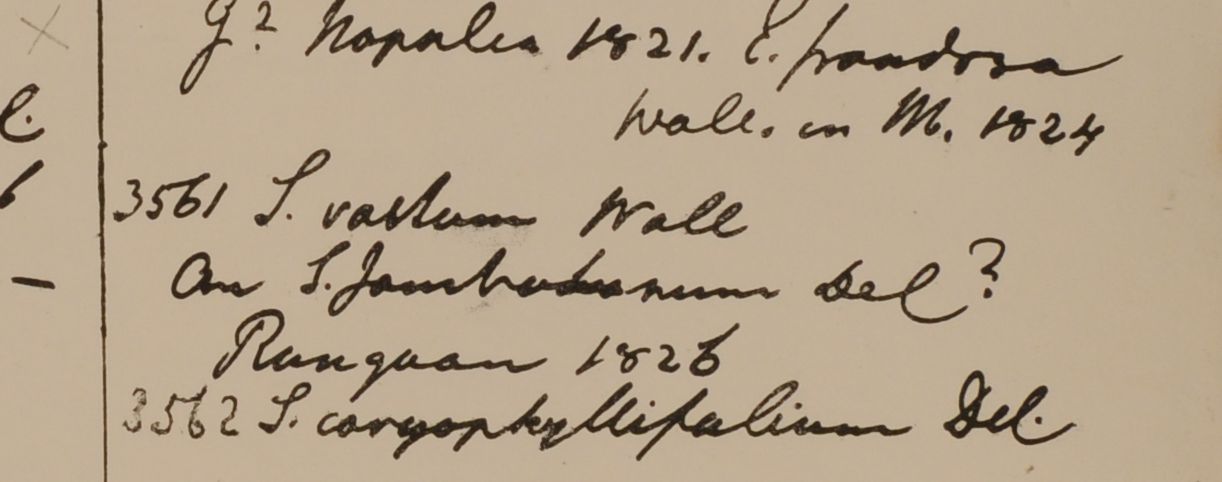 e.
6
—
g? Napalea 1821. E. frondosa
Wall. in M. 1824
3561 S. vastum Wall
An S. Jambolanum Del?
Rungoan 1826
3562 S. caryophyllifolium Del.